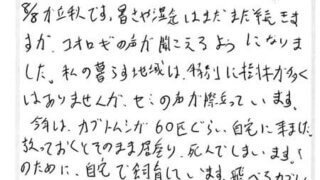 8/8が立秋です。暑さや湿気はまだまだ続きます
が、コオロギの声が聞こえるようになりまし
た。私の暮らす地域は、特別に樹林が多く
はありませんが、セミの声が際立っています。
今年は、カブトムシが60匹ぐらい、自宅に来ました。
放っておくとそのまま居座り、死んでしまいます。そ
のために、自宅で飼育しています。飛べるカブ